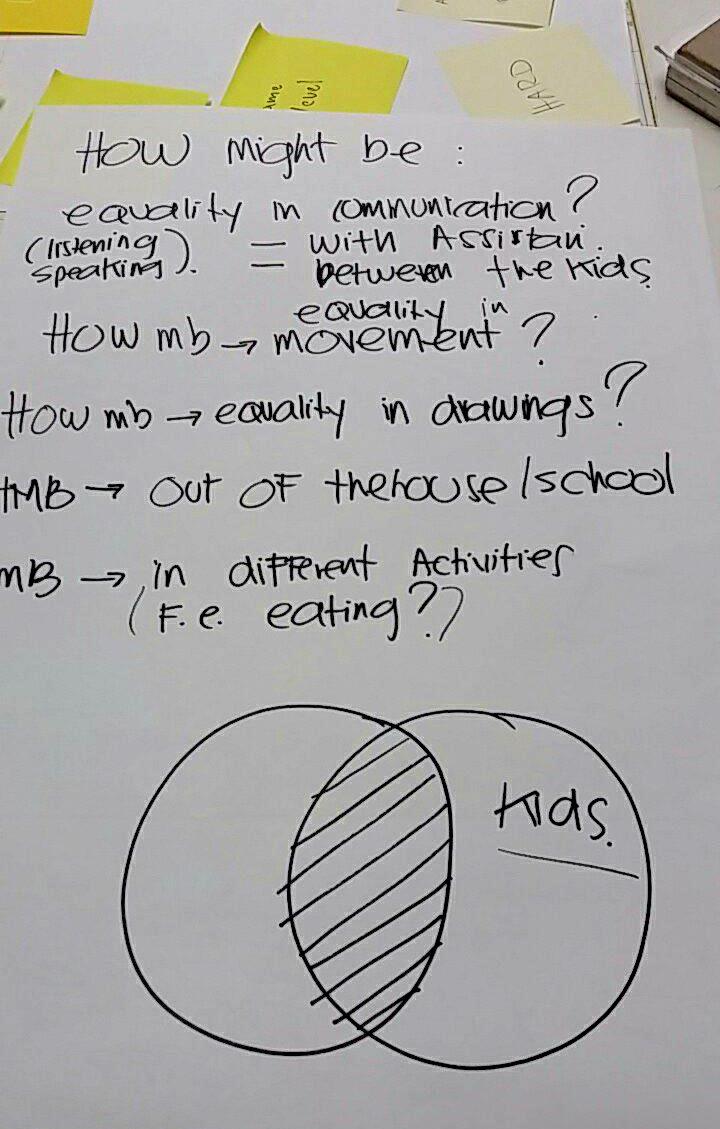 ame
level
HARD
How might be :
equality in communication?
(listening
speaking).
= with Assistan.
= between the kids
equality in
How mb → movement ?
How mb → equality in drawings?
HMB → out of the house/school
mB → in different Activities
(F.e. eating?)
Kids.